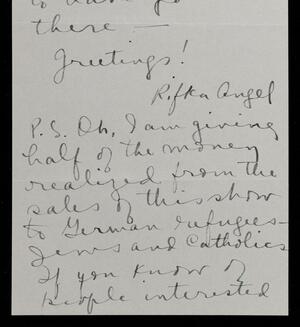 there —
Greetings!
Rifka Angel
P.S. Oh, I am giving
half of the money
realized from the
sales of this show
to German refugees—
Jews and Catholics
If you know of
people interested